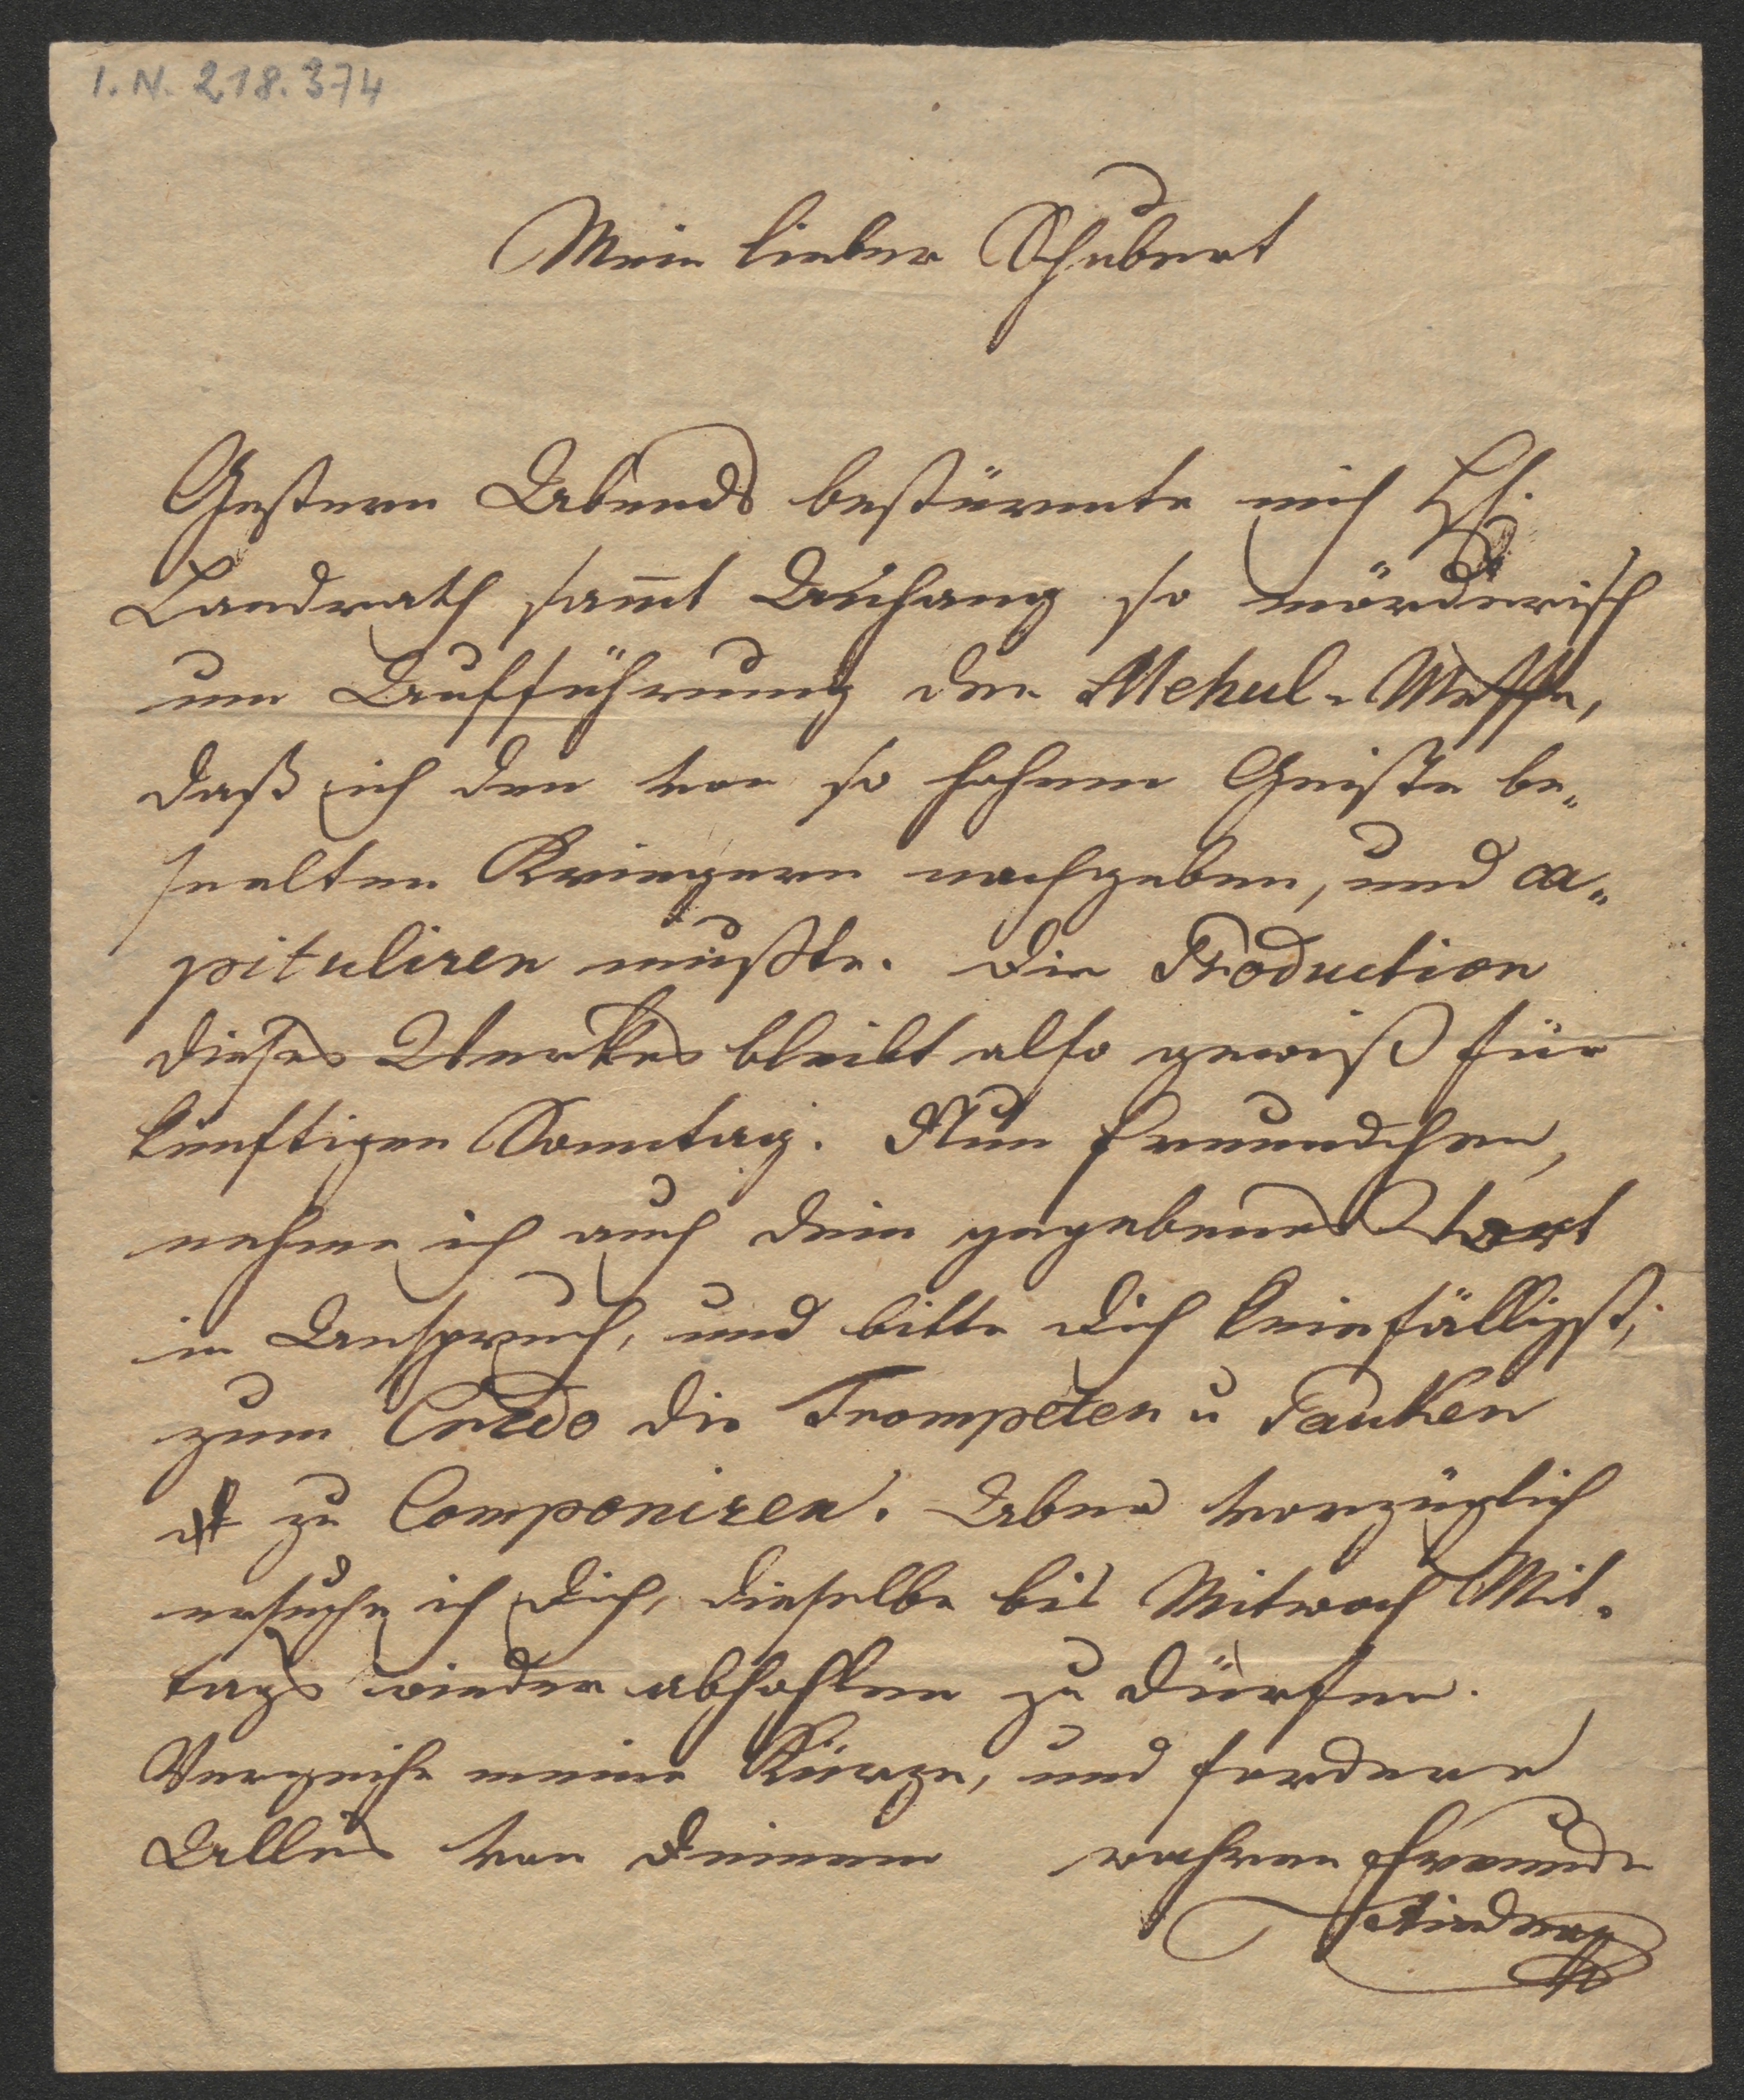 I. N. 218.374
Mein lieber Schubert
Gestern Abends bestürmte mich H.
Landrath samt Anhang so mörderisch
um Aufführung der Mehul-Messe,
daß ich den von so hohem Geiste be„
seelten Kriegern nachgeben, und ca„
pituliren mußte. Die Production
dieses Werkes bleibt also gewiß für
künftigen Sonntag. Nun Freundchen,
nehme ich auch dein gegebenes Wort
in Anspruch, und bitte dich kniefälligst,
zum Credo die Trompeten u Pauken
zu Componiren. Aber vorzüglich
ersuche ich dich, dieselbe bis Mitwoch Mit-
tags wieder abhohlen zu dürfen.
Verzeihe meine Kürze, und fordere
Alles von deinem wahren Freunde